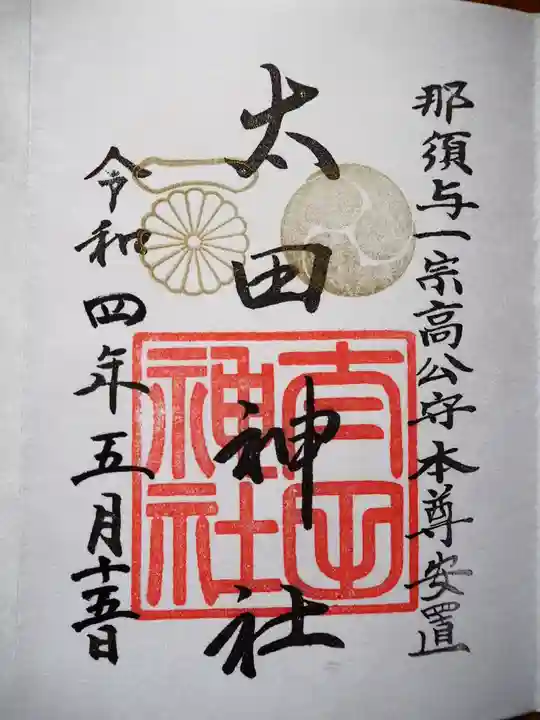 那須与一宗高公守本尊安置
太田神社
令和四年五月十五日
太田神社